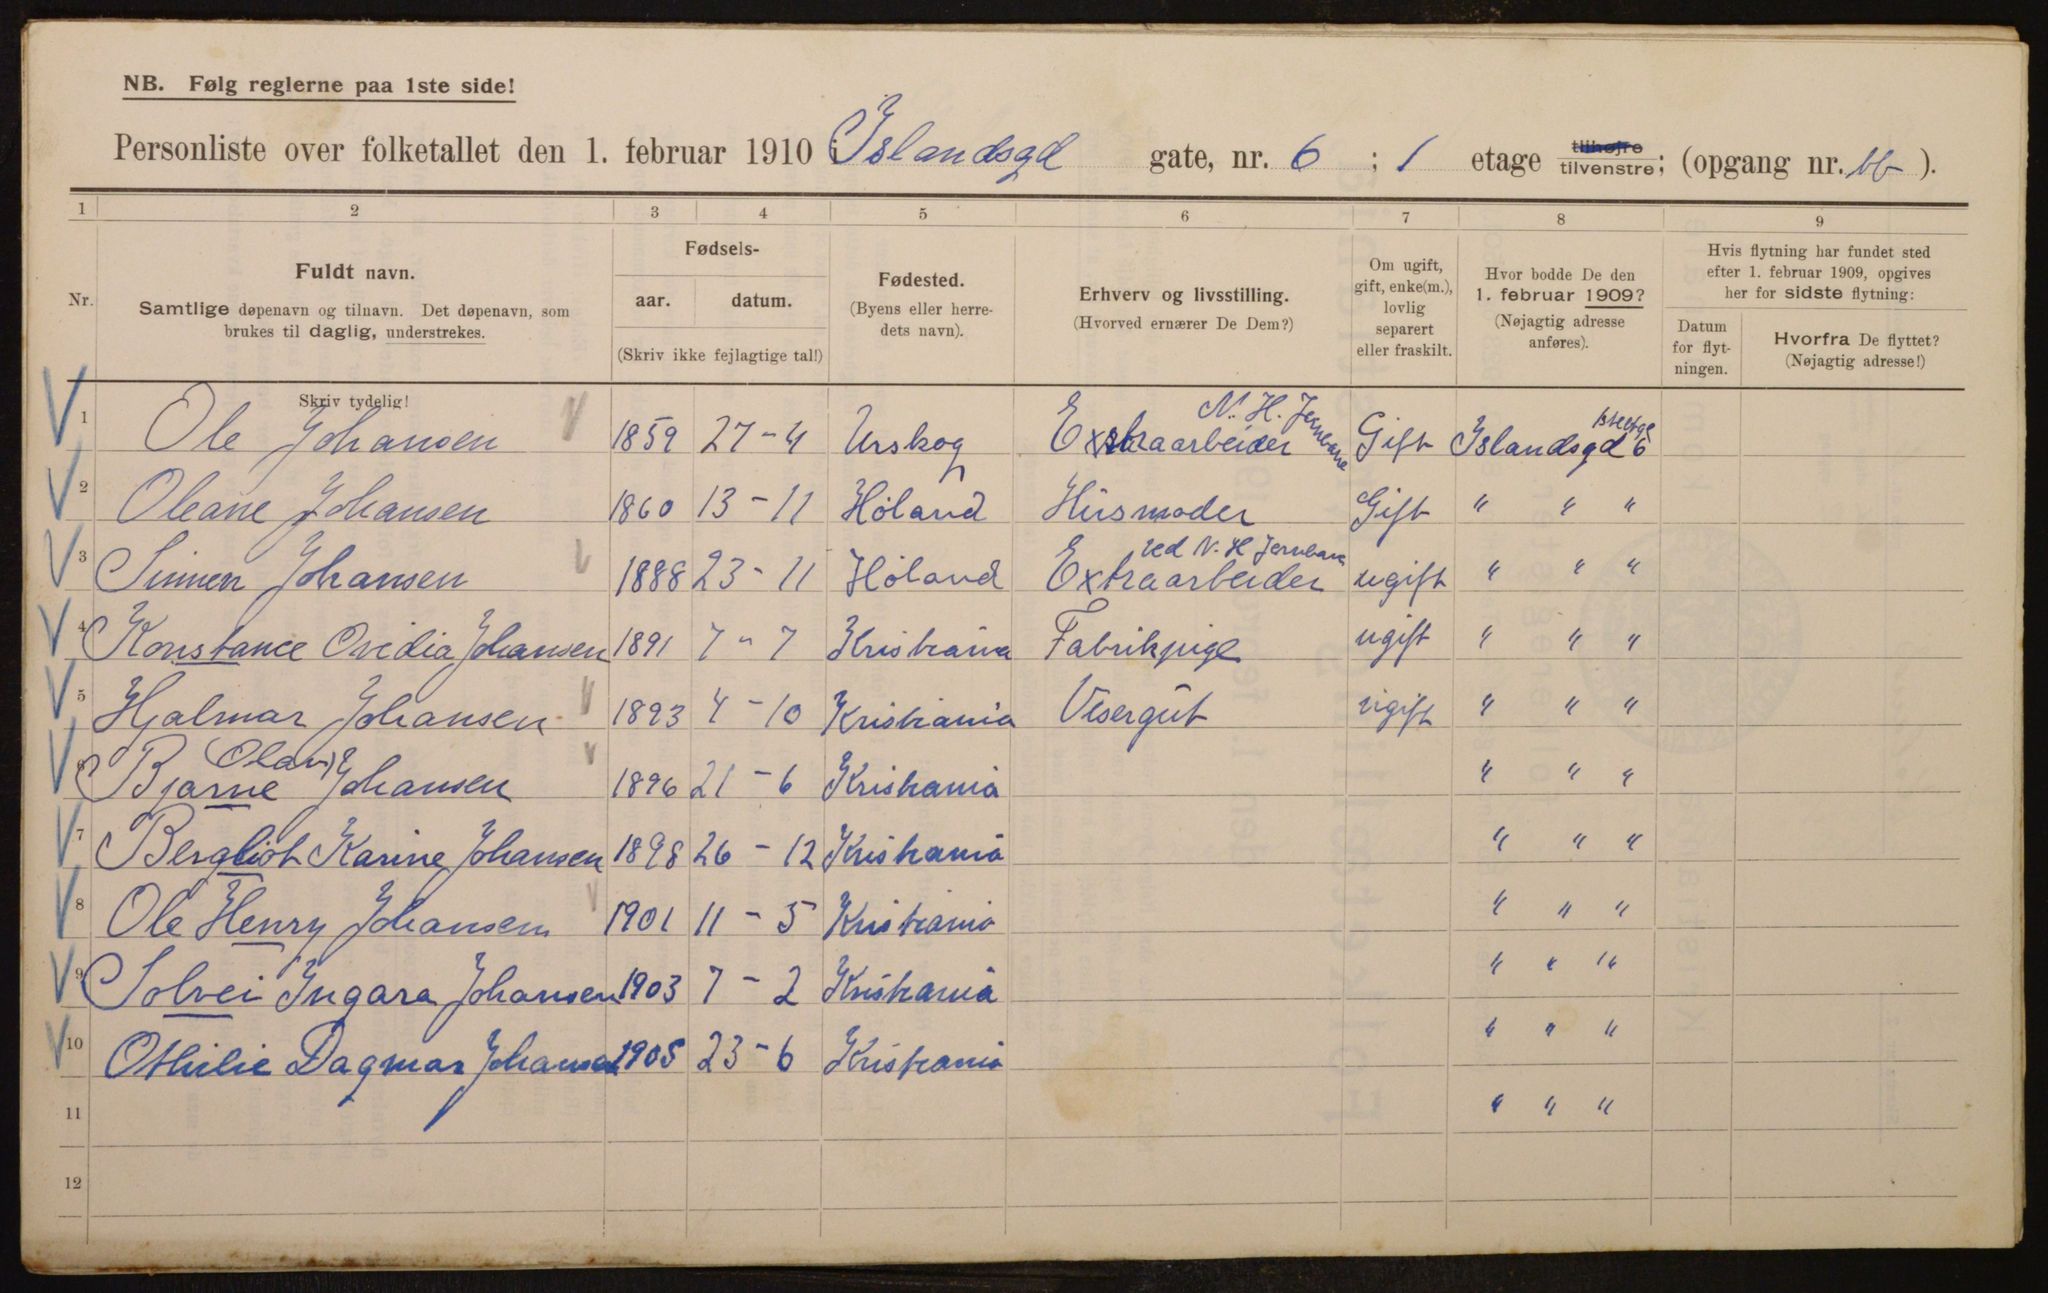 NB. Følg reglerne paa 1ste side!
Personliste over folketallet den 1. februar 1910 i Islandsgd gate, nr. 6 ; 1 etage tilhøjre tilvenstre; (opgang nr. bb ).
1 2 3 4 5 6 7 8 9
Nr.
Fuldt navn.
Samtlige døpenavn og tilnavn. Det døpenavn, som
brukes til daglig, understrekes.
Skriv tydelig!
Fødsels-
aar. datum.
(Skriv ikke fejlagtige tal!)
Fødested.
(Byens eller herre-
dets navn).
Erhverv og livsstilling.
(Hvorved ernærer De Dem?)
Om ugift,
gift, enke(m.),
lovlig
separert
eller fraskilt.
Hvor bodde De den
1. februar 1909?
(Nøjagtig adresse
anføres).
Hvis flytning har fundet sted
efter 1. februar 1909, opgives
her for sidste flytning:
Datum
for flyt-
ningen.
Hvorfra De flyttet?
(Nøjagtig adresse!)
1 Ole Johansen 1859 27-4 Urskog Extraarbeider N. H. Jernbane Gift Islandsgd 6
2 Oleane Johansen 1860 13-11 Höland Husmoder Gift " " "
3 Simen Johansen 1888 23-11 Höland Extraarbeider ved N. H Jernbane ugift " " "
4 Konstance Ovidia Johansen 1891 7-7 Kristiania Fabrikpige ugift " " "
5 Hjalmar Johansen 1893 4-10 Kristiania Visergut ugift " " "
6 Bjarne (Olav) Johansen 1896 21-6 Kristiania " " "
7 Bergliot Karine Johansen 1898 26-12 Kristiania " " "
8 Ole Henry Johansen 1901 11-5 Kristiania " " "
9 Solvei Ingara Johansen 1903 7-2 Kristiania " " "
10 Othilie Dagmar Johansen 1905 23-6 Kristiania " " "
11 " " "
12